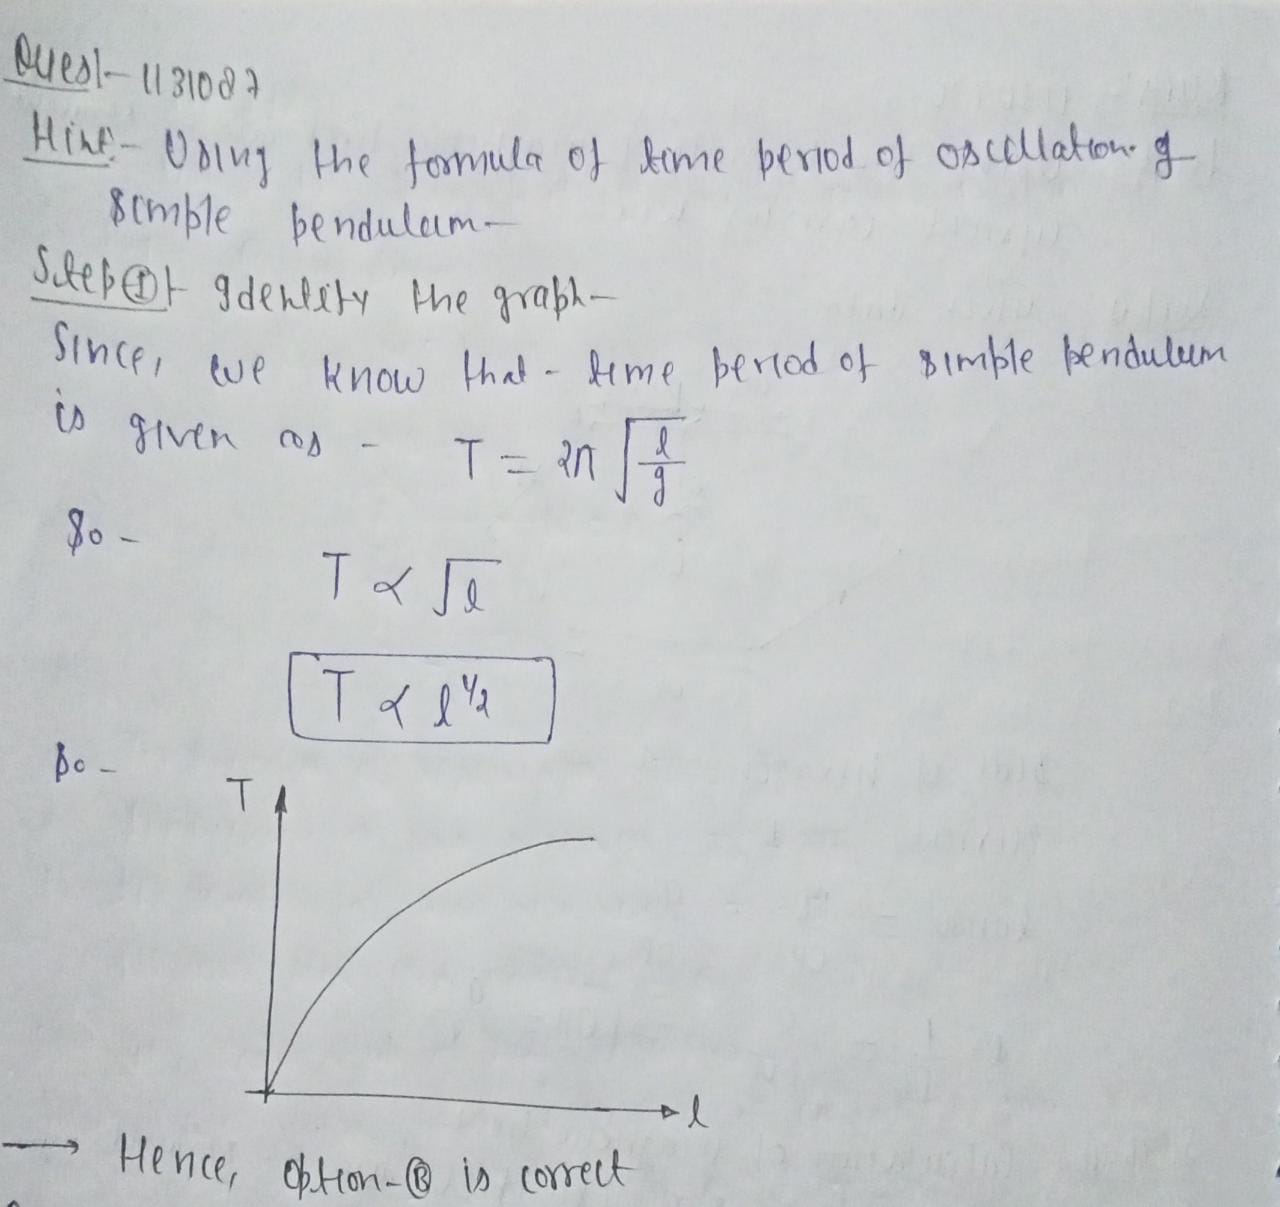 Quest- 1131087
Hint- Using the formula of time period of oscillation of
simple pendulum-
Step① Identity the graph-
Since, we know that - time period of simple pendulum
is given as - T = 2π √(l/g)
So -
T ∝ √l
T ∝ l^1/2
So -
T
l
→ Hence, option-Ⓑ is correct